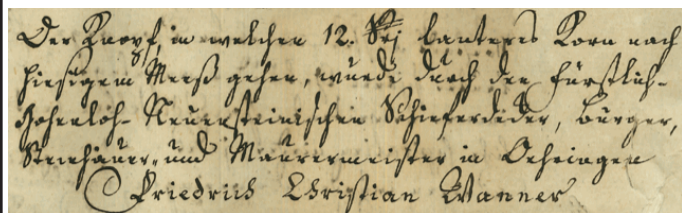 Der Knopf, in welchen 12. Sri lauteres Korn nach
hiesigem Meeß gehen, wurde durch den Fürstlich-
Hohenloh-Neuensteinischen Schieferdecker, Burger,
Steinhauer- und Maurermeister in Oehringen
Friedrich Christian Wanner